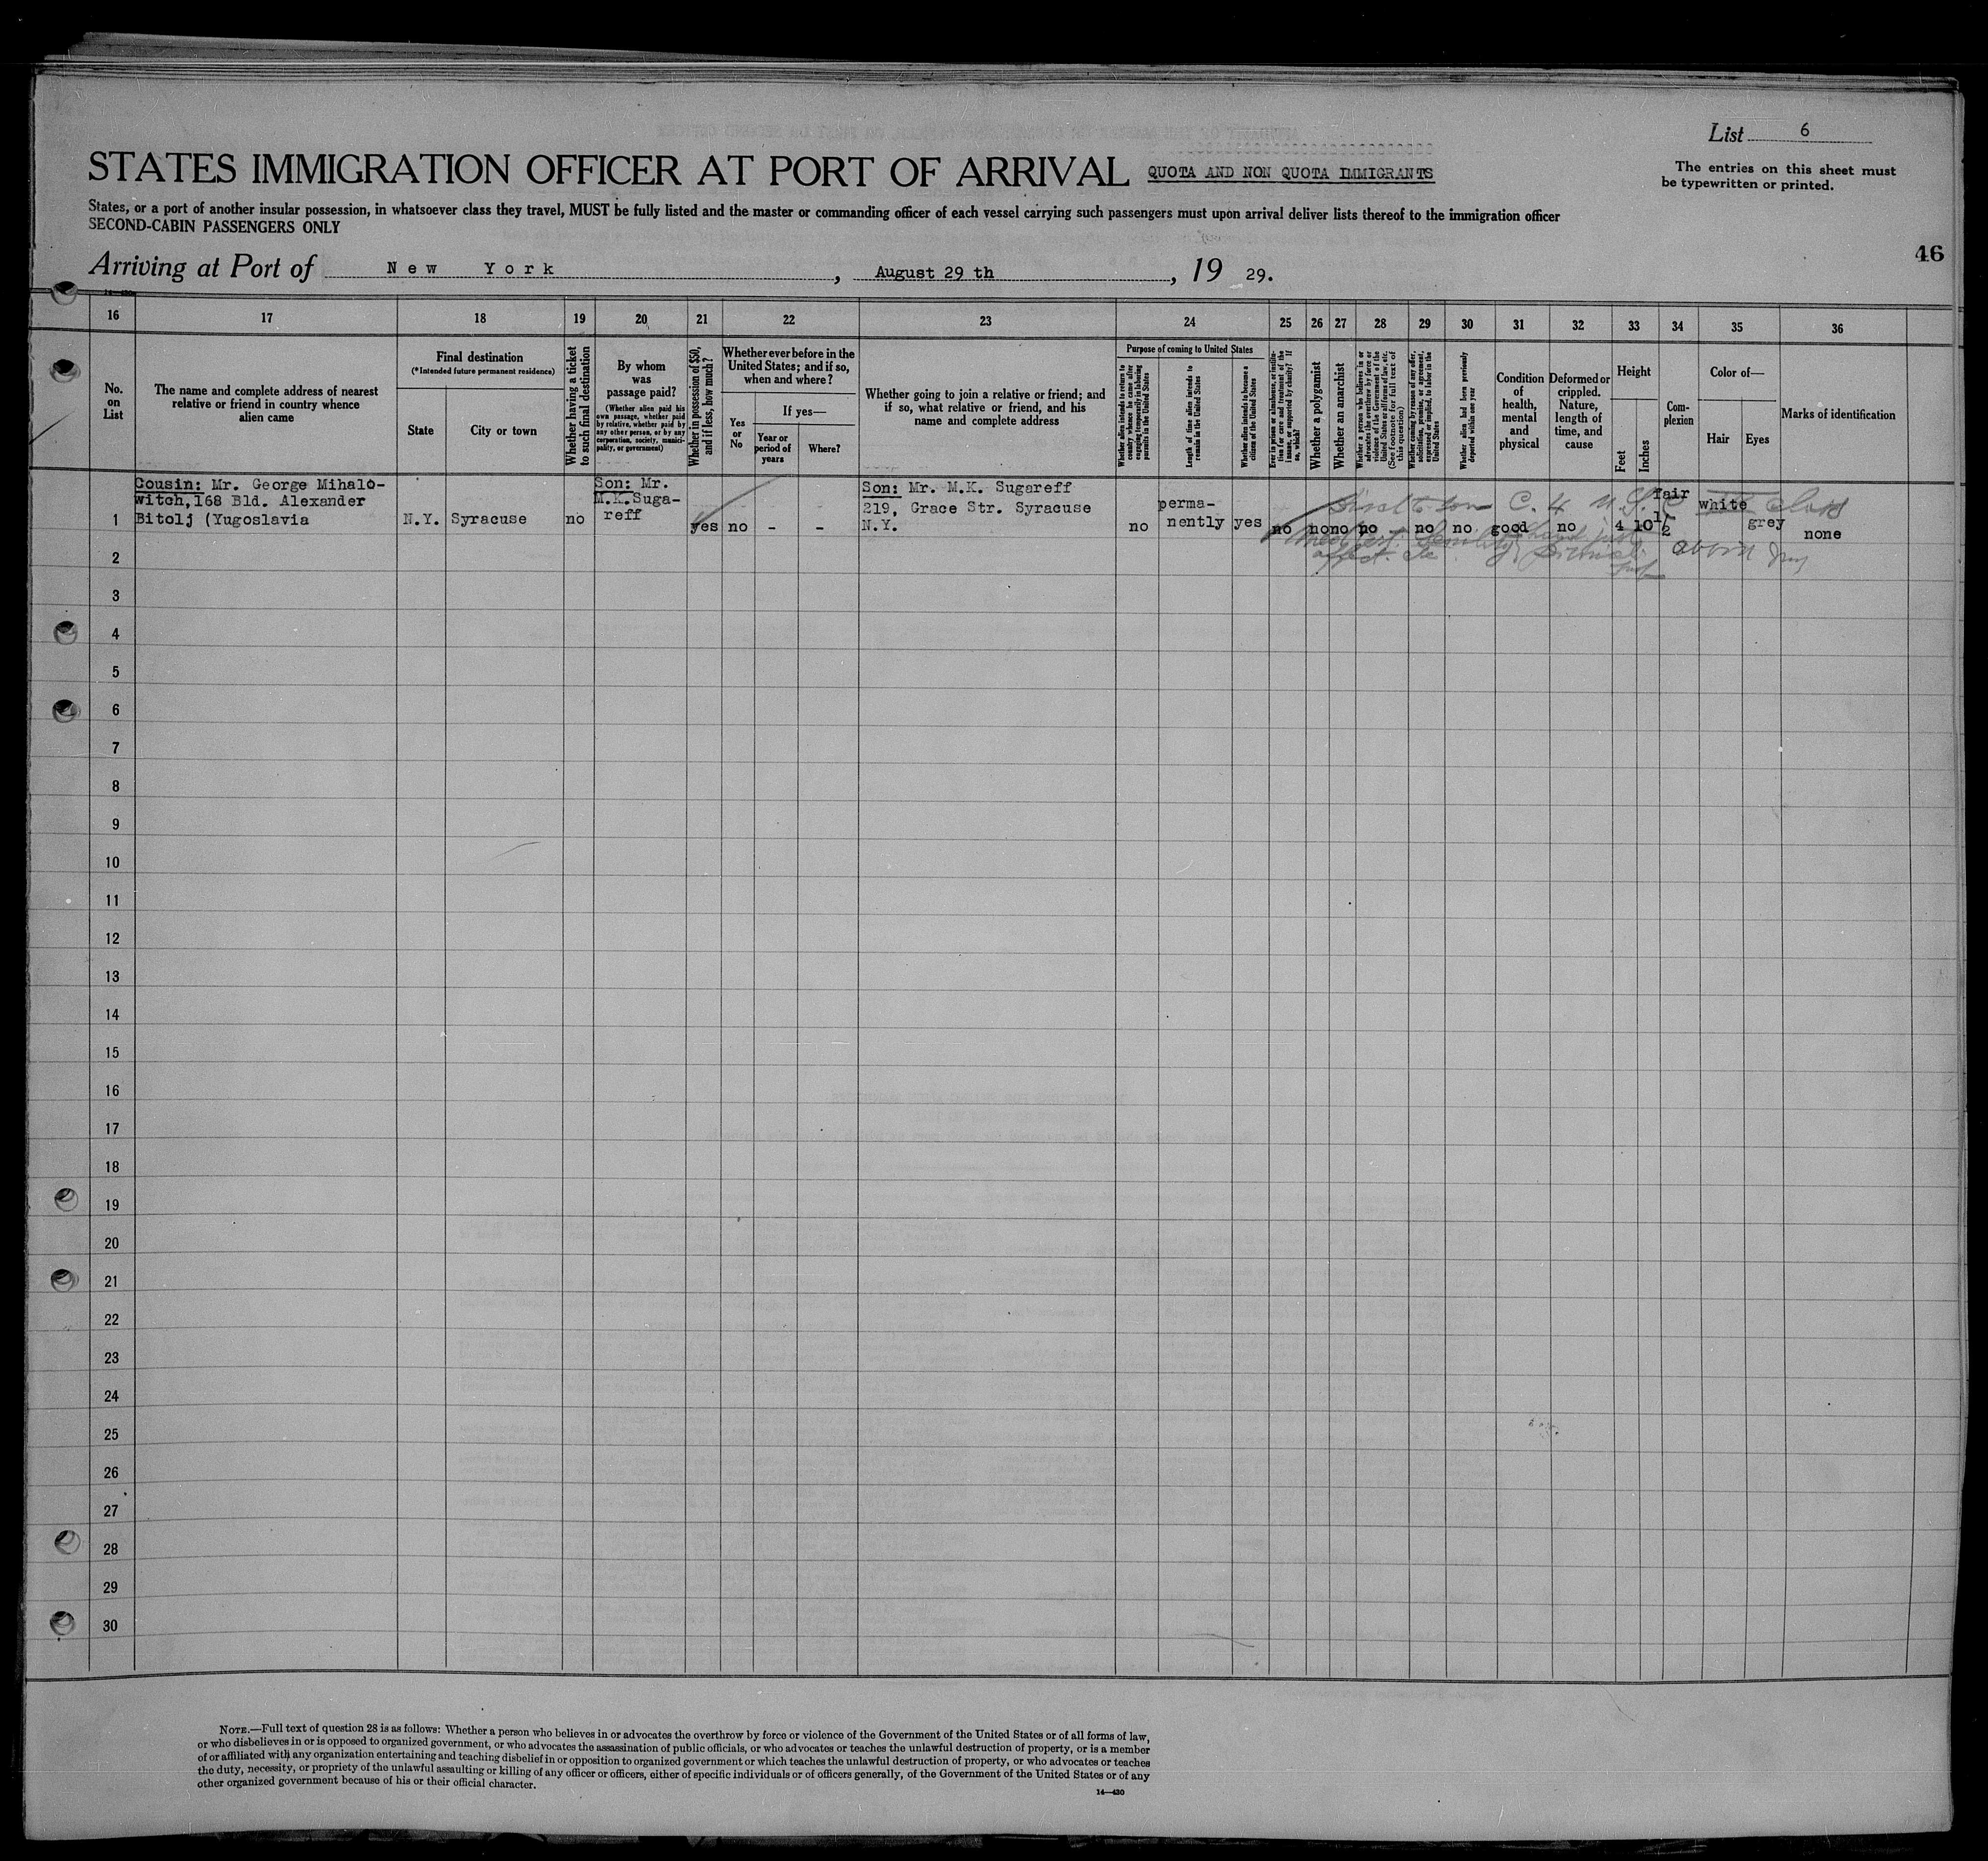 List 6
STATES IMMIGRATION OFFICER AT PORT OF ARRIVAL QUOTA AND NON QUOTA IMMIGRANTS
The entries on this sheet must
be typewritten or printed.
States, or a port of another insular possession, in whatsoever class they travel, MUST be fully listed and the master or commanding officer of each vessel carrying such passengers must upon arrival deliver lists thereof to the immigration officer
SECOND-CABIN PASSENGERS ONLY
46
Arriving at Port of New York, August 29 th, 19 29.
16 17 18 19 20 21 22 23 24 25 26 27 28 29 30 31 32 33 34 35 36
No.
on
List
The name and complete address of nearest
relative or friend in country whence
alien came
Final destination
(*Intended future permanent residence)
State
City or town
Whether having a ticket
to such final destination
By whom
was
passage paid?
(Whether alien paid his
own passage, whether paid
by relative, whether paid by
any other person, or by any
corporation, society, munici-
pality, or government)
Whether in possession of $50,
and if less, how much?
Whether ever before in the
United States; and if so,
when and where?
Yes
or
No
If yes—
Year or
period of
years
Where?
Whether going to join a relative or friend; and
if so, what relative or friend, and his
name and complete address
Purpose of coming to United States
Whether alien intends to return to
country whence he came after
engaging temporarily in laboring
pursuits in the United States
Length of time alien intends to
remain in the United States
Whether alien intends to become a
citizen of the United States
Ever in prison or almshouse, or institu-
tion for care and treatment of the
insane, or supported by charity? If
so, which?
Whether a polygamist
Whether an anarchist
Whether a person who believes in or
advocates the overthrow by force or
violence of the Government of the
United States or all forms of law, etc.
(See footnote for full text of
this question)
Whether coming by reason of any offer,
solicitation, promise, or agreement,
expressed or implied, to labor in the
United States
Whether alien had been previously
deported within one year
Condition
of
health,
mental
and
physical
Deformed or
crippled.
Nature,
length of
time, and
cause
Height
Feet
Inches
Com-
plexion
Color of—
Hair
Eyes
Marks of identification
1
Cousin: Mr. George Mihalo-
witch,168 Bld. Alexander
Bitolj (Yugoslavia
N.Y.
Syracuse
no
Son: Mr.
M.K.Suga-
reff
yes
no
-
-
Son: Mr. M.K. Sugareff
219, Grace Str. Syracuse
N.Y.
no
perma-
nently
yes
no
no
no
no
no
no
good
no
4
10 1/2
fair
white
grey
none
2
3
4
5
6
7
8
9
10
11
12
13
14
15
16
17
18
19
20
21
22
23
24
25
26
27
28
29
30
NOTE.—Full text of question 28 is as follows: Whether a person who believes in or advocates the overthrow by force or violence of the Government of the United States or of all forms of law,
or who disbelieves in or is opposed to organized government, or who advocates the assassination of public officials, or who advocates or teaches the unlawful destruction of property, or is a member
of or affiliated with any organization entertaining and teaching disbelief in or opposition to organized government or which teaches the unlawful destruction of property, or who advocates or teaches
the duty, necessity, or propriety of the unlawful assaulting or killing of any officer or officers, either of specific individuals or of officers generally, of the Government of the United States or of any
other organized government because of his or their official character.
14—430